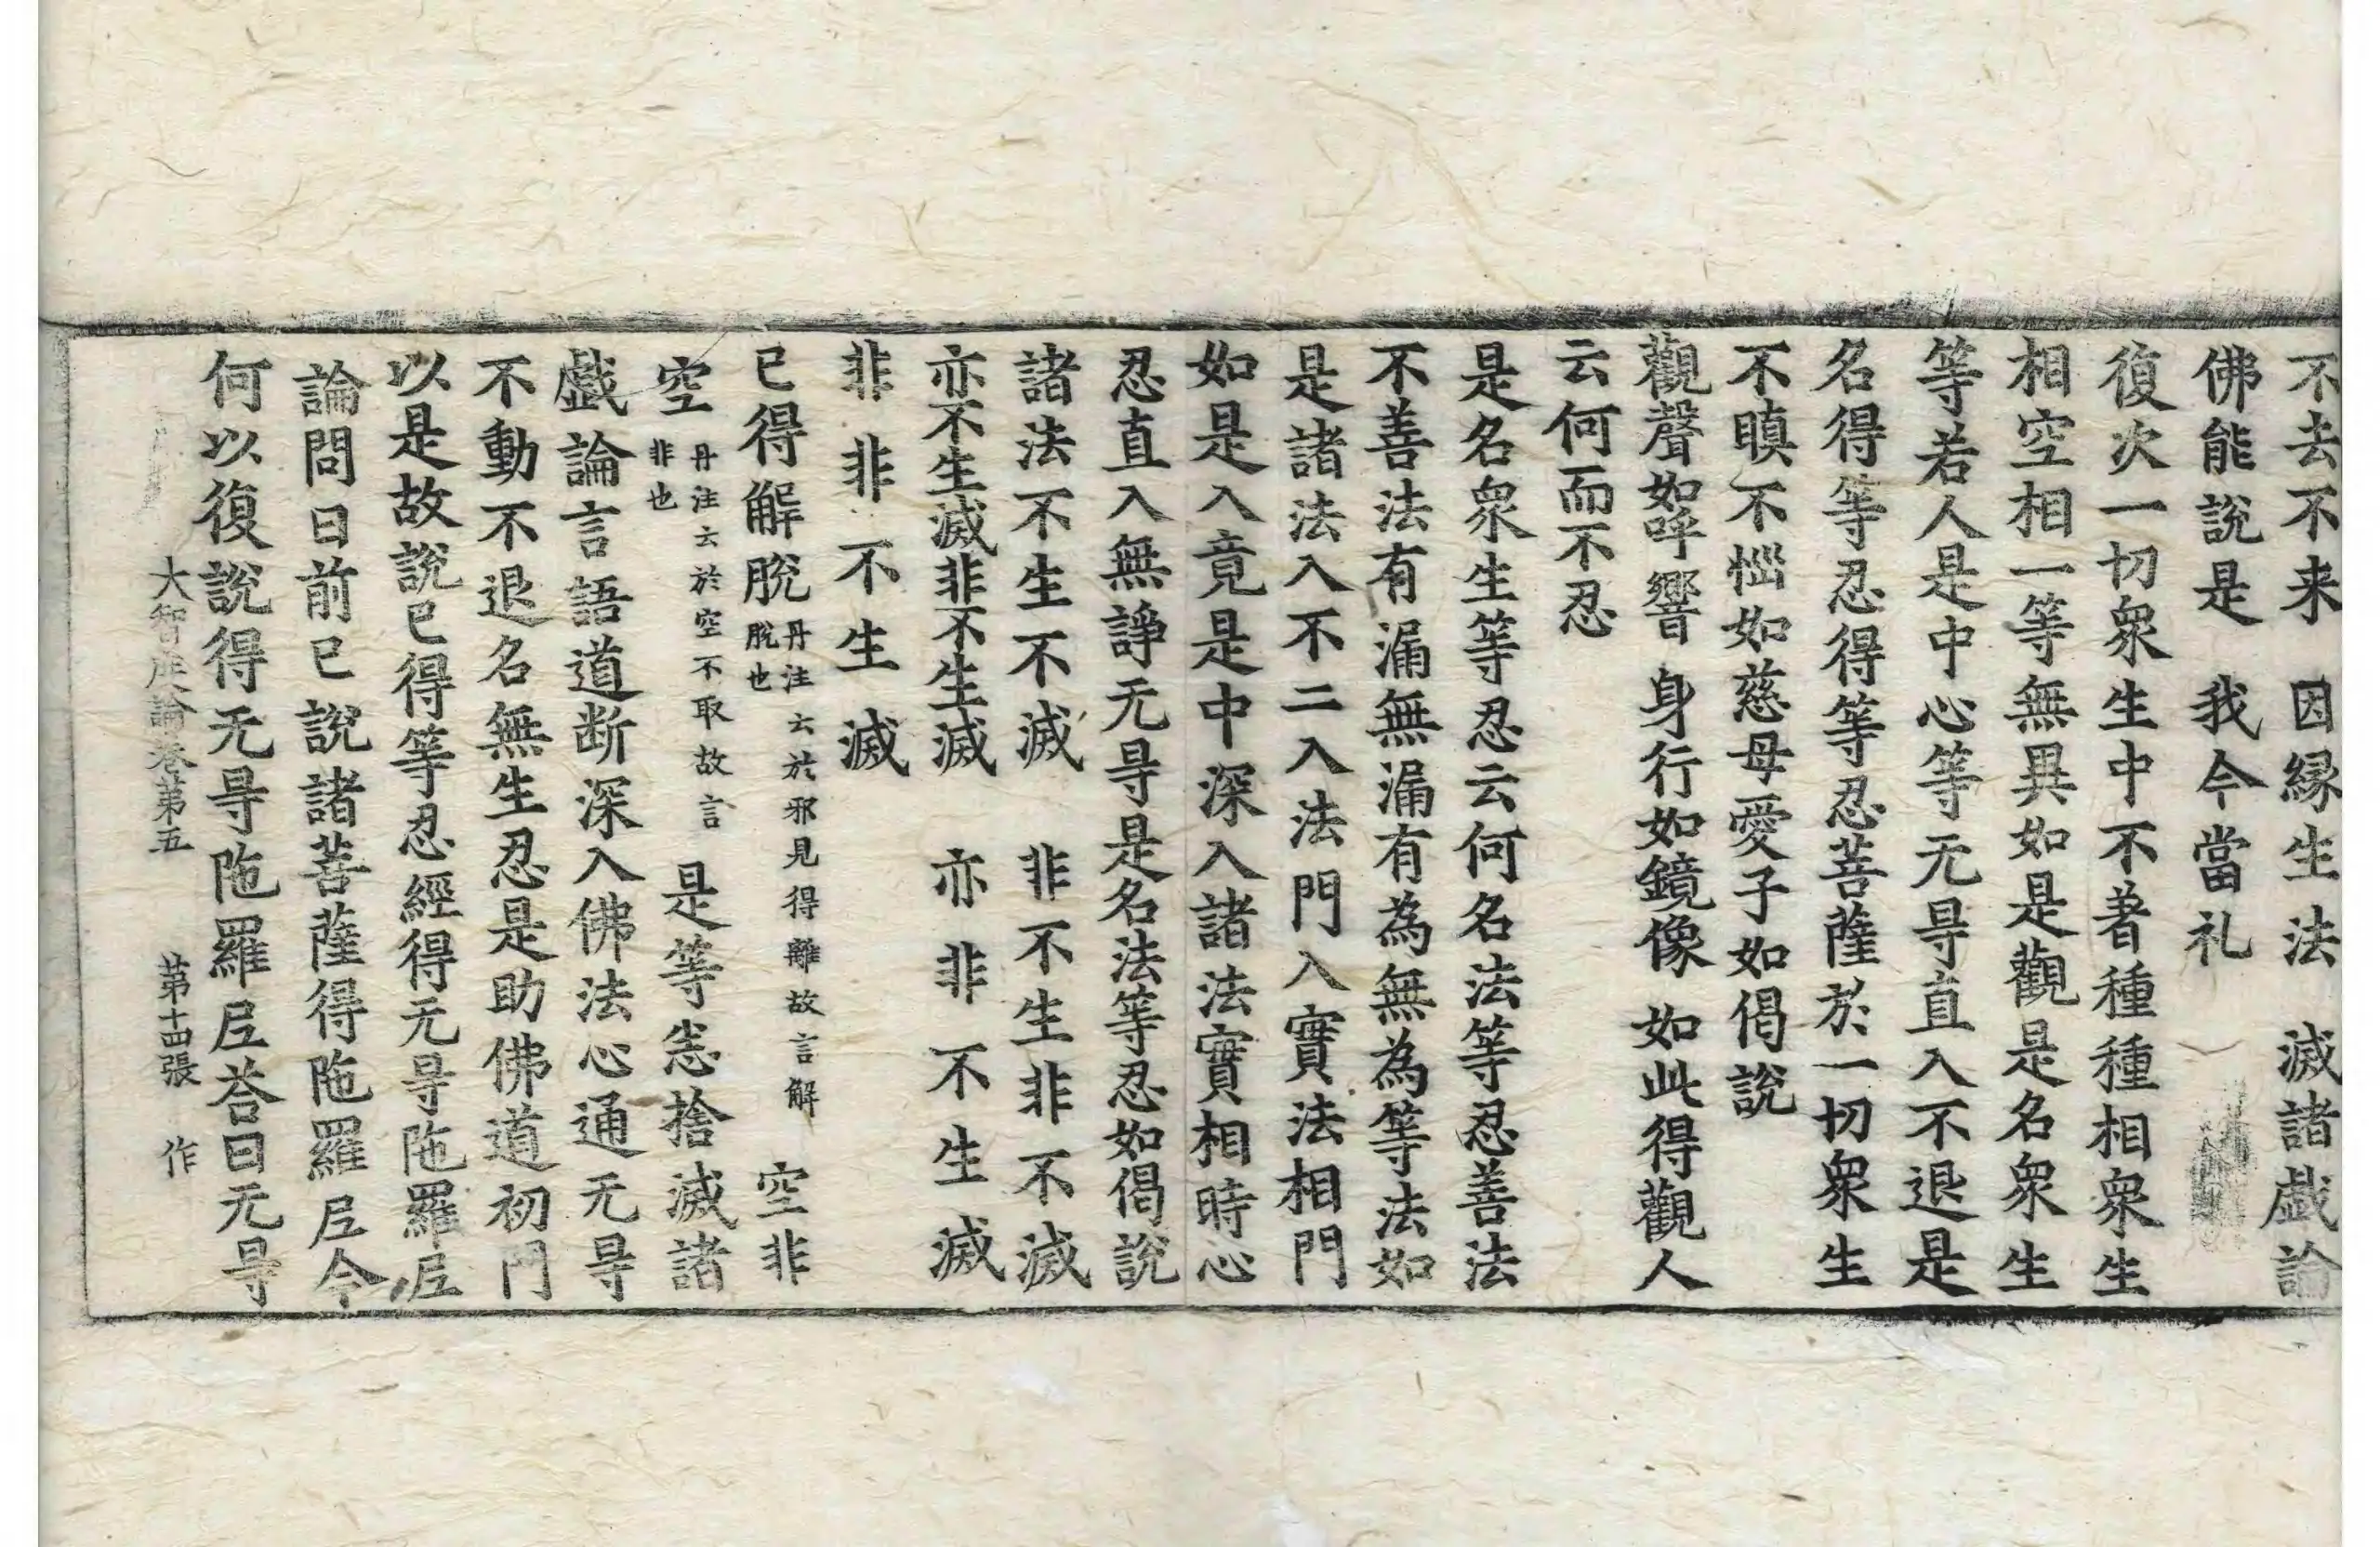 不去不来　因縁生法　滅諸戲論
佛能說是　我今當礼
復次一切衆生中不著種種相衆生
相空相一等無異如是觀是名衆生
等若人是中心等无㝵直入不退是
名得等忍得等忍菩薩於一切衆生
不瞋不惱如慈母愛子如偈說
觀聲如呼響　身行如鏡像　如此得觀人
云何而不忍
是名衆生等忍云何名法等忍善法
不善法有漏無漏有為無為等法如
是諸法入不二入法門入實法相門
如是入竟是中深入諸法實相時心
忍直入無諍无㝵是名法等忍如偈說
諸法不生不滅　非不生非不滅
亦不生滅非不生滅　亦非不生滅
非非不生滅
已得解脫丹注云於邪見得離故言解脫也　空非
空丹注云於空不取故言非也　是等悉捨滅諸
戲論言語道断深入佛法心通无㝵
不動不退名無生忍是助佛道初門
以是故說已得等忍經得无㝵陁羅𡰱
論問曰前已說諸菩薩得陁羅𡰱今
何以復說得无㝵陁羅𡰱荅曰无㝵
大智度論卷第五　第十四張　作